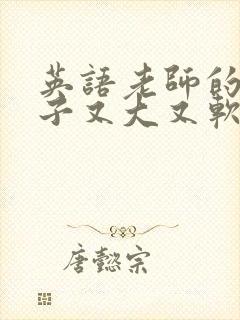 英語老師的
子又大又軟
唐懿宗